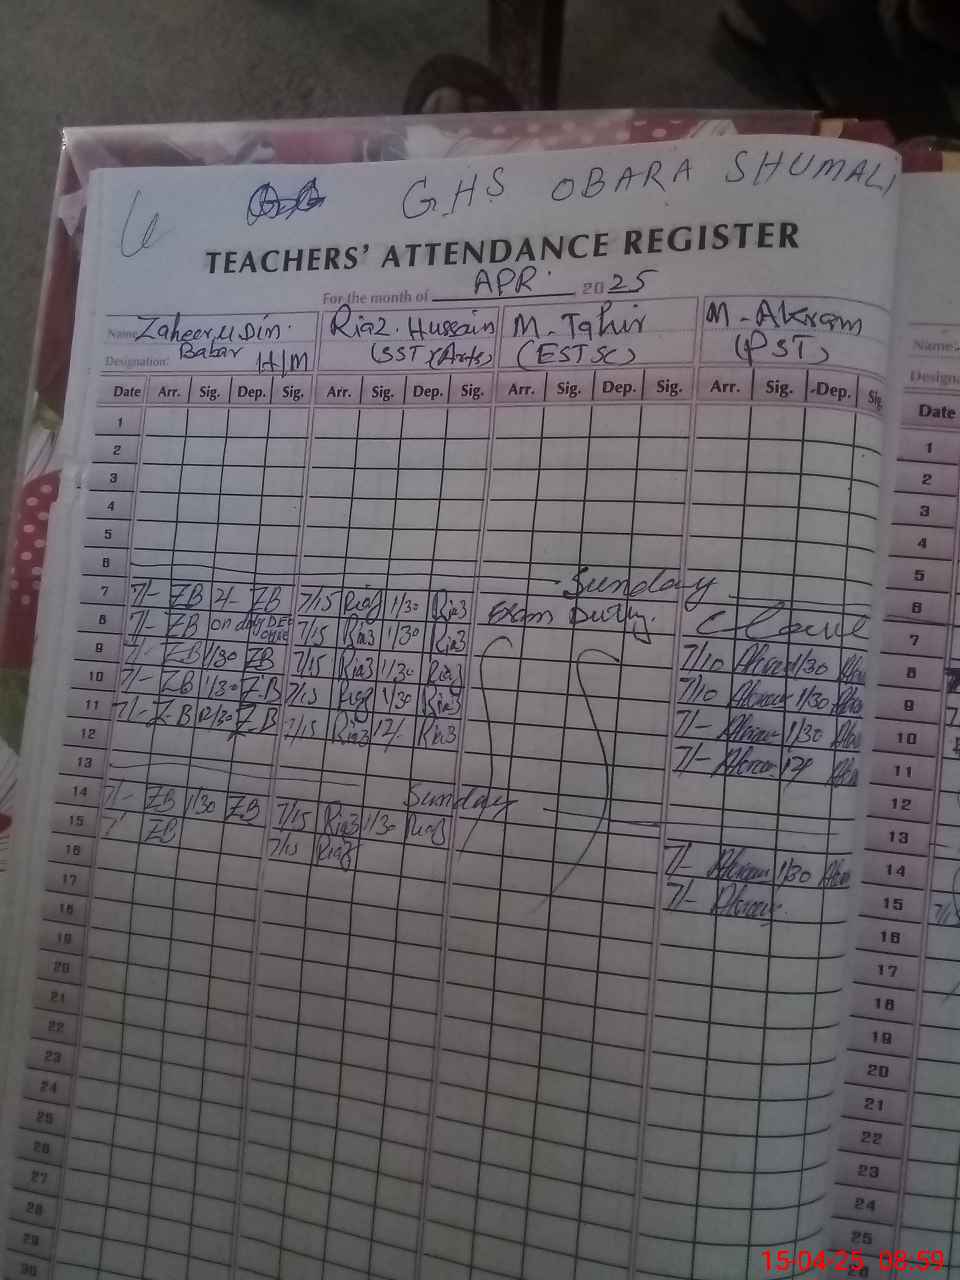 GHS OBARA SHUMALI
TEACHERS' ATTENDANCE REGISTER
For the month of APR. 2025
Name Zaheer, U Din. Babar Riaz. Hussain M. Tahir M. Akram
Designation: H/M (SST, (Arts) (EST SC) (PST)
Date Arr. Sig. Dep. Sig. Arr. Sig. Dep. Sig. Arr. Sig. Dep. Sig. Arr. Sig. Dep. Sig.
1
2
3
4
5
6 Sunday
7 7/- ZB ZB 7/15 Riaz 1/30 Ria3 Exam Duty.
8 7/- ZB on duty 7/15 Ria3 1/30 Ria3 7/10 Akram 1/30
9 7/- ZB 1/30 ZB 7/15 Ria3 1/30 Ria3 7/10 Akram 1/30
10 7/- ZB 1/30 Z-B 7/15 Riaz 1/30 Ria3 7/- Akram 1/30
11 7/- Z-B 12/30 Z-B 7/15 Ria3 12/- Ria3 7/- Akram
12
13 Sunday
14 7/- ZB 1/30 ZB 7/15 Ria3 1/30 Riaz 7/- Akram 1/30
15 7/ ZB 7/15 Riaz 7/- Akram
16
17
18
19
20
21
22
23
24
25
26
27
28
29
30
Name:
Date
1
2
3
4
5
6
7
8
9
10
11
12
13
14
15
16
17
18
19
20
21
22
23
24
25
26
15-04-25 08:59